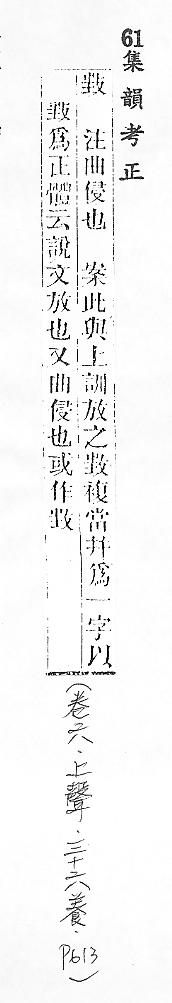 61集韻考正
注曲侵也 案此與上訓放之複當并爲一字以
爲正體云說文放也又曲侵也或作
(卷六．上聲．三十六養．P613)